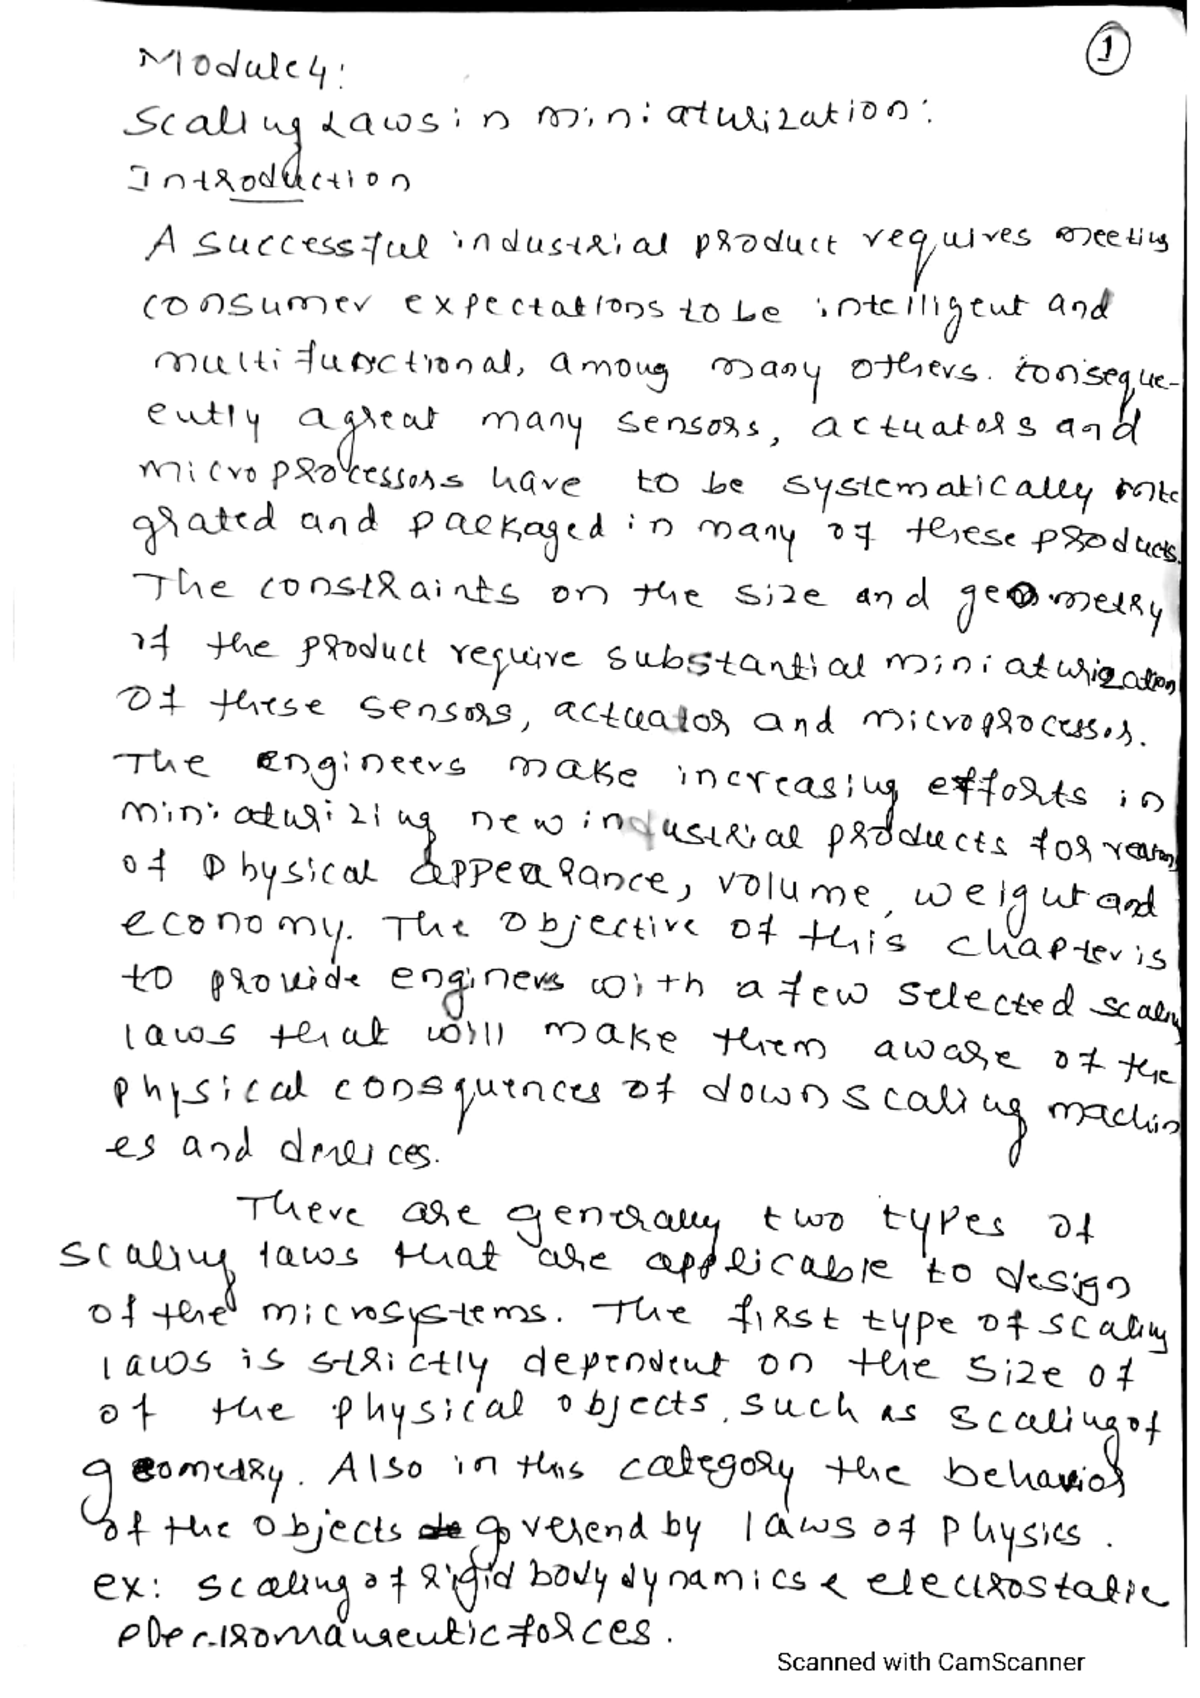 1
Module 4:
Scaling Laws in miniaturization:
Introduction
A successful industrial product requires meeting
consumer expectations to be intelligent and
multifunctional, among many others. Conseque-
ently a great many sensors, actuators and
microprocessors have to be systematically inte
grated and packaged in many of these products.
The constraints on the size and geometry
of the product require substantial miniaturization
of these sensors, actuator and microprocessor.
The engineers make increasing efforts in
miniaturizing new industrial products for reasons
of physical appearance, volume, weight and
economy. The objective of this chapter is
to provide engineers with a few selected scaling
laws that will make them aware of the
physical consquences of down scaling machin
es and devices.
There are generally two types of
scaling laws that are applicable to design
of the microsystems. The first type of scaling
laws is strictly dependent on the size of
of the physical objects, such as scaling of
geometry. Also in this category the behavior
of the objects goverend by laws of physics.
ex: scaling of rigid body dynamics & electrostatic
electromangeutic forces.
Scanned with CamScanner